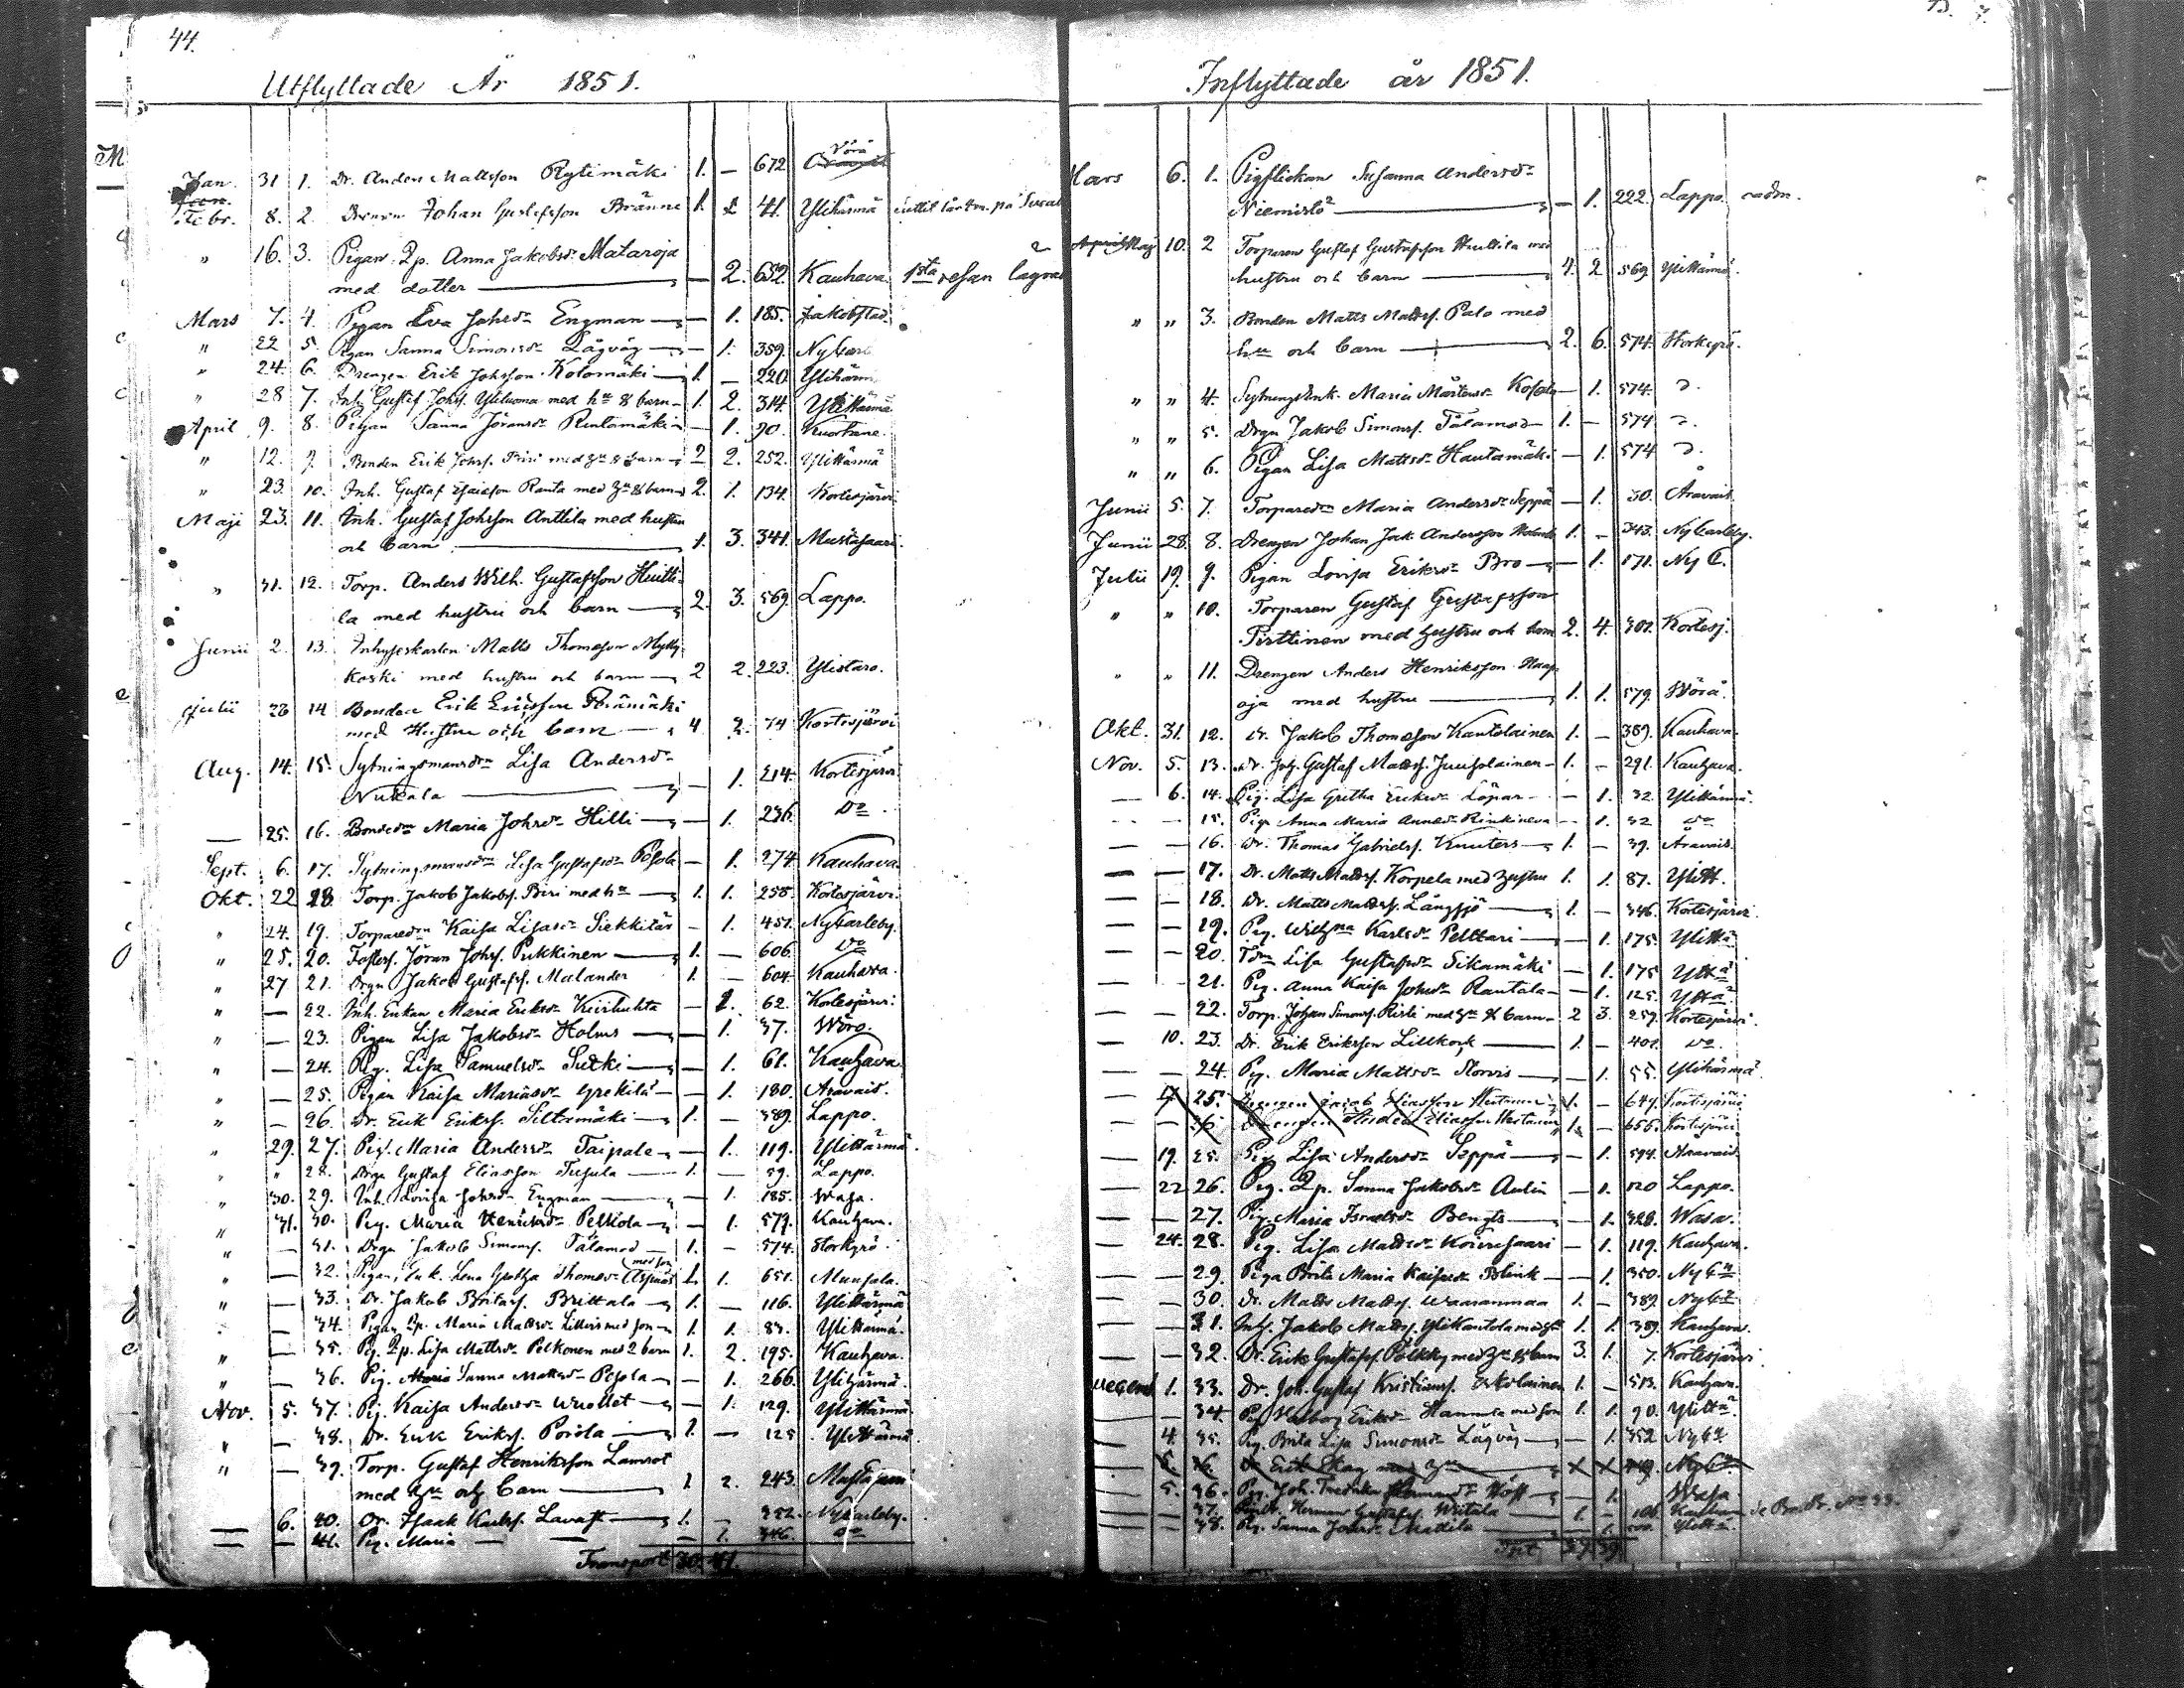 44.
Utflyttade År 1851.
Jan. 31 1. Dr. Anders Mattsson Rytimäki 1. — 672 Vörå
Febr. 8. 2. Johan Gustafsson Brännı 1. 41. Ylihärmä
" 16. 3. Pigan Qp. Anna Jakobsdr Mataroja
med dotter — 2. 652. Kauhava 1sta resan
Mars 7. 4. Pigan Eva Johsdr Engman — 1. 185. Jakobstad
" 22 5. Pigan Sanna Simonsdr Lågväg — 1. 359. NyCarl
" 24. 6. Drengen Erik Johsson Kolomäki 1. — 220. Ylihärm
" 28 7. Inh. Gustaf Johss. Yliluoma med hu & barn 1. 2. 314. Ylihärmä
April 9. 8. Pigan Sanna Jöransdr Rintamäki — 1. 90. Kuortane.
" 12. 9. Bonden Erik Johss. Piri med hu & barn 2 2. 252. Ylihärmä
" 23. 10. Inh. Gustaf Esaiasson Ranta med hu & barn 2. 1. 134. Kortesjärvi
Maji 23. 11. Inh. Gustaf Johsson Anttila med hustru
och barn 1. 3. 341. Mustasaari.
" 31. 12. Torp. Anders Wilh. Gustafsson Huitti-
la med hustru och barn 2. 3. 569. Lappo.
Junii 2. 13. Inhyseskarlen Matts Thomasson Mylly-
koski med hustru och barn 2 2. 223. Ylistaro.
Julii 28 14 Bonden Erik Ericsson Perämäki
med Hustru och barn 4 2. 74 Kortesjärvi
Aug. 14. 15. Sytningsmansdr Lisa Andersdr
Nukala — 1. 214. Kortesjärvi
— 25. 16. Bondedr Maria Johsdr Hilli — 1. 236. Do
Sept. 6. 17. Sytningsmansdr Lisa Gustafsdr Pesola — 1. 274 Kauhava.
Okt. 22 18. Torp. Jakob Jakobss. Piri med hu 1. 1. 258. Kortesjärvi.
" 24. 19. Torparedr Kaisa Lisasdr Siekkitär — 1. 451. NyCarleby.
" 25. 20. Fosters. Jöran Johss. Pukkinen 1. — 606. Do
" 27 21. Drgn Jakob Gustafss. Malander 1. — 604 Kauhava.
" — 22. Inh. Enkan Maria Eriksdr Kiviluhta — 1. 62. Kortesjärvi.
" — 23. Pigan Lisa Jakobsdr Holms — 1. 37. Wörå.
" — 24. Pig. Lisa Samuelsdr Sutki — 1. 61. Kauhava
" — 25. Pigan Kaisa Mariasdr Grekilä — 1. 180. Oravais.
" — 26. Dr. Erik Erikss. Siltamäki 1. — 389. Lappo.
" 29. 27. Pig. Maria Andersdr Taipale — 1. 119. Ylihärmä.
" " 28. Drgn Gustaf Eliasson Tusula 1. — 59. Lappo.
" 30. 29. Inh. Lovisa Johsdr Engman — 1. 185. Wasa.
" 31. 30. Pig. Maria Henriksdr Pelkola — 1. 579. Kauhava.
" — 31. Drgn Jakob Simonss. Tålamod 1. — 574. Storkyrö.
" — 32. Pigan, Enk. Lena Gretha Thomasdr Aspnäs med son 1. 1. 651. Munsala.
" — 33. Dr. Jakob Britass. Brittala 1. — 116. Ylihärmä
" — 34. Pigan Qp. Maria Mattsdr Lillors med son 1. 1. 83. Ylihärmä.
" — 35. Pig. Qp. Lisa Mattsdr Pelkonen med 2 barn 1. 2. 195. Kauhava.
" — 36. Pig. Maria Sanna Mattsdr Pesola — 1. 266. Ylihärmä.
Nov. 5. 37. Pig. Kaisa Andersdr Wuollet — 1. 129. Ylihärmä.
" — 38. Dr. Erik Erikss. Poiola 1. — 125 Ylihärmä.
" — 39. Torp. Gustaf Henriksson
med hu och barn 1 2. 243. Mustasaari
— 6. 40. Dr. Isaak Karlss. Lavast 1. — 352. NyCarleby.
— — 41. Pig. Maria — — — 1. 346. Do
Transport 30. 41.
Inflyttade år 1851.
Mars 6. 1. Pigflickan Susanna Andersdr
Niemistö — 1. 222. Lappo.
April Maj 10. 2 Torparen Gustaf Gustafsson Huitila med
hustru och barn 4. 2 569. Ylihärmä.
" " 3. Bonden Matts Mattss. Palo med
hu och barn 2. 6. 574. Storkyrö.
" " 4. Sytningsenk. Maria Mårtensdr — 1. 574. D.
" " 5. Drgn Jakob Simonss. Tålamod 1. — 574 D.
" " 6. Pigan Lisa Mattsdr Hautamäki — 1. 574 D.
Junii 5. 7. Torparedr Maria Andersdr Seppä — 1. 30. Oravais.
Junii 28. 8. Drengen Johan Jak. Andersson 1. — 343. NyCarleby.
Julii 19. 9. Pigan Lovisa Eriksdr Bro — 1. 171. Ny C.
" " 10. Torparen Gustaf Gustafsson
Pirttinen med hustru och barn 2. 4. 301. Kortesj.
" " 11. Drengen Anders Henriksson Haap-
oja med hustru 1. 1. 579. Wörå.
Okt. 31. 12. Dr. Jakob Thomasson Kantolainen 1. — 389. Kauhava.
Nov. 5. 13. Dr. Joh. Gustaf Mattss. Juuholainen 1. — 291. Kauhava.
— 6. 14. Pig. Lisa Gretha Eriksdr Löpar — 1. 32. Ylihärmä.
— — 15. Pig. Anna Maria Annasdr Rinkineva — 1. 32 Do
— — 16. Dr. Thomas Gabrielss. Knuters 1. — 39. Oravais.
— — 17. Dr. Matts Mattss. Korpela med hustru 1. 1. 87. Ylih.
— — 18. Dr. Matts Mattss. Långsjö 1. — 346. Kortesjärvi.
— — 19. Pig. Wilhma Karlsdr Pelttari — 1. 175. Ylihä
— — 20. Tdr Lisa Gustafsdr Sikamäki — 1. 175 Ylihä
— — 21. Pig. Anna Kaisa Johsdr Rautala — 1. 125. Ylihä.
— — 22. Torp. Johan Simonss. Risti med hu & barn 2 3. 259. Kortesjärvi.
— 10. 23. Dr. Erik Eriksson Lillkock 1. — 401. Do.
— — 24. Pig. Maria Mattsdr Storvis — 1. 55. Ylihärmä.
— 17 25. Drengen Jakob Eliasson 1. — 647. Kortesjärvi
— — 26. Drengen Eliasson 1. — 656. Kortesjärvi
— 19. 25. Pig. Lisa Andersdr Seppä — 1. 594. Oravais.
— 22 26. Pig. Qp. Sanna Jakobsdr Aulin — 1. 120 Lappo.
— — 27. Pig. Maria Israelsdr Bengts — 1. 328. Wasa.
— 24. 28. Pig. Lisa Mattsdr Koivusaari — 1. 119. Kauhava.
— — 29. Piga Brita Maria Kaisasdr Blink — 1. 350. Ny C.
— — 30. Dr. Matts Mattss. Waaranmaa 1. — 389. Ny C.
— — 31. Inh. Jakob Mattss. Ylikantola med hu 1. 1. 389. Kauhava.
— — 32. Dr. Erik Gustafss. Pölkky med hu & barn 3. 1. 7. Kortesjärvi.
Decemb. 1. 33. Dr. Joh. Gustaf Kristianss. Erkolainen 1. — 513. Kauhava.
— — 34. Pig. Walborg Eriksdr Hannula med son 1. 1. 90. Ylihä.
— 4. 35. Pig. Brita Lisa Simonsdr Lågväg — 1. 352 Ny C.
— 5. 36. Dr. Erik Skog med hu
— 5. 36. Pig. Joh. Fredrika — 1. Wasa.
— — 37. Herman Gustafss. Writala 1. — 106 Kauhava
— — 38. Pig. Sanna Johsdr Mattila — 1. Ylihä.
Trpt 39